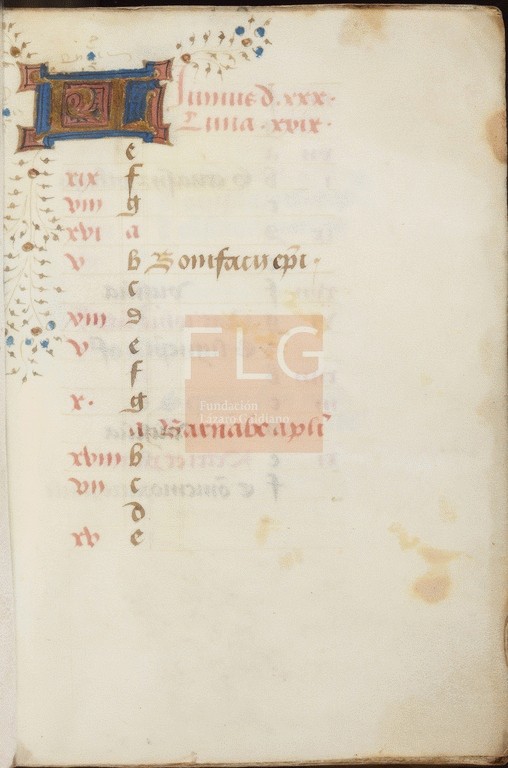 KL Iunius d. xxx.
Luna. xxix.
e
xix f
viii g
xvi a
v b Bonifacii epi.
c
viii d
e
v
f
x. g
a Barnabe apli
xviii b
vii c
d
xv e
FLG
Fundación
Lázaro Galdiano